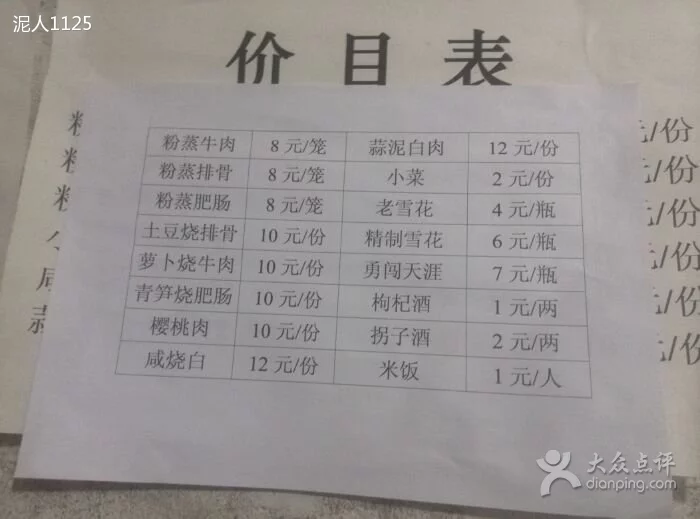 泥人1125
价目表
粉蒸牛肉 8 元/笼 蒜泥白肉 12 元/份
粉蒸排骨 8 元/笼 小菜 2 元/份
粉蒸肥肠 8 元/笼 老雪花 4 元/瓶
土豆烧排骨 10 元/份 精制雪花 6 元/瓶
萝卜烧牛肉 10 元/份 勇闯天涯 7 元/瓶
青笋烧肥肠 10 元/份 枸杞酒 1 元/两
樱桃肉 10 元/份 拐子酒 2 元/两
咸烧白 12 元/份 米饭 1 元/人
大众点评
dianping.com